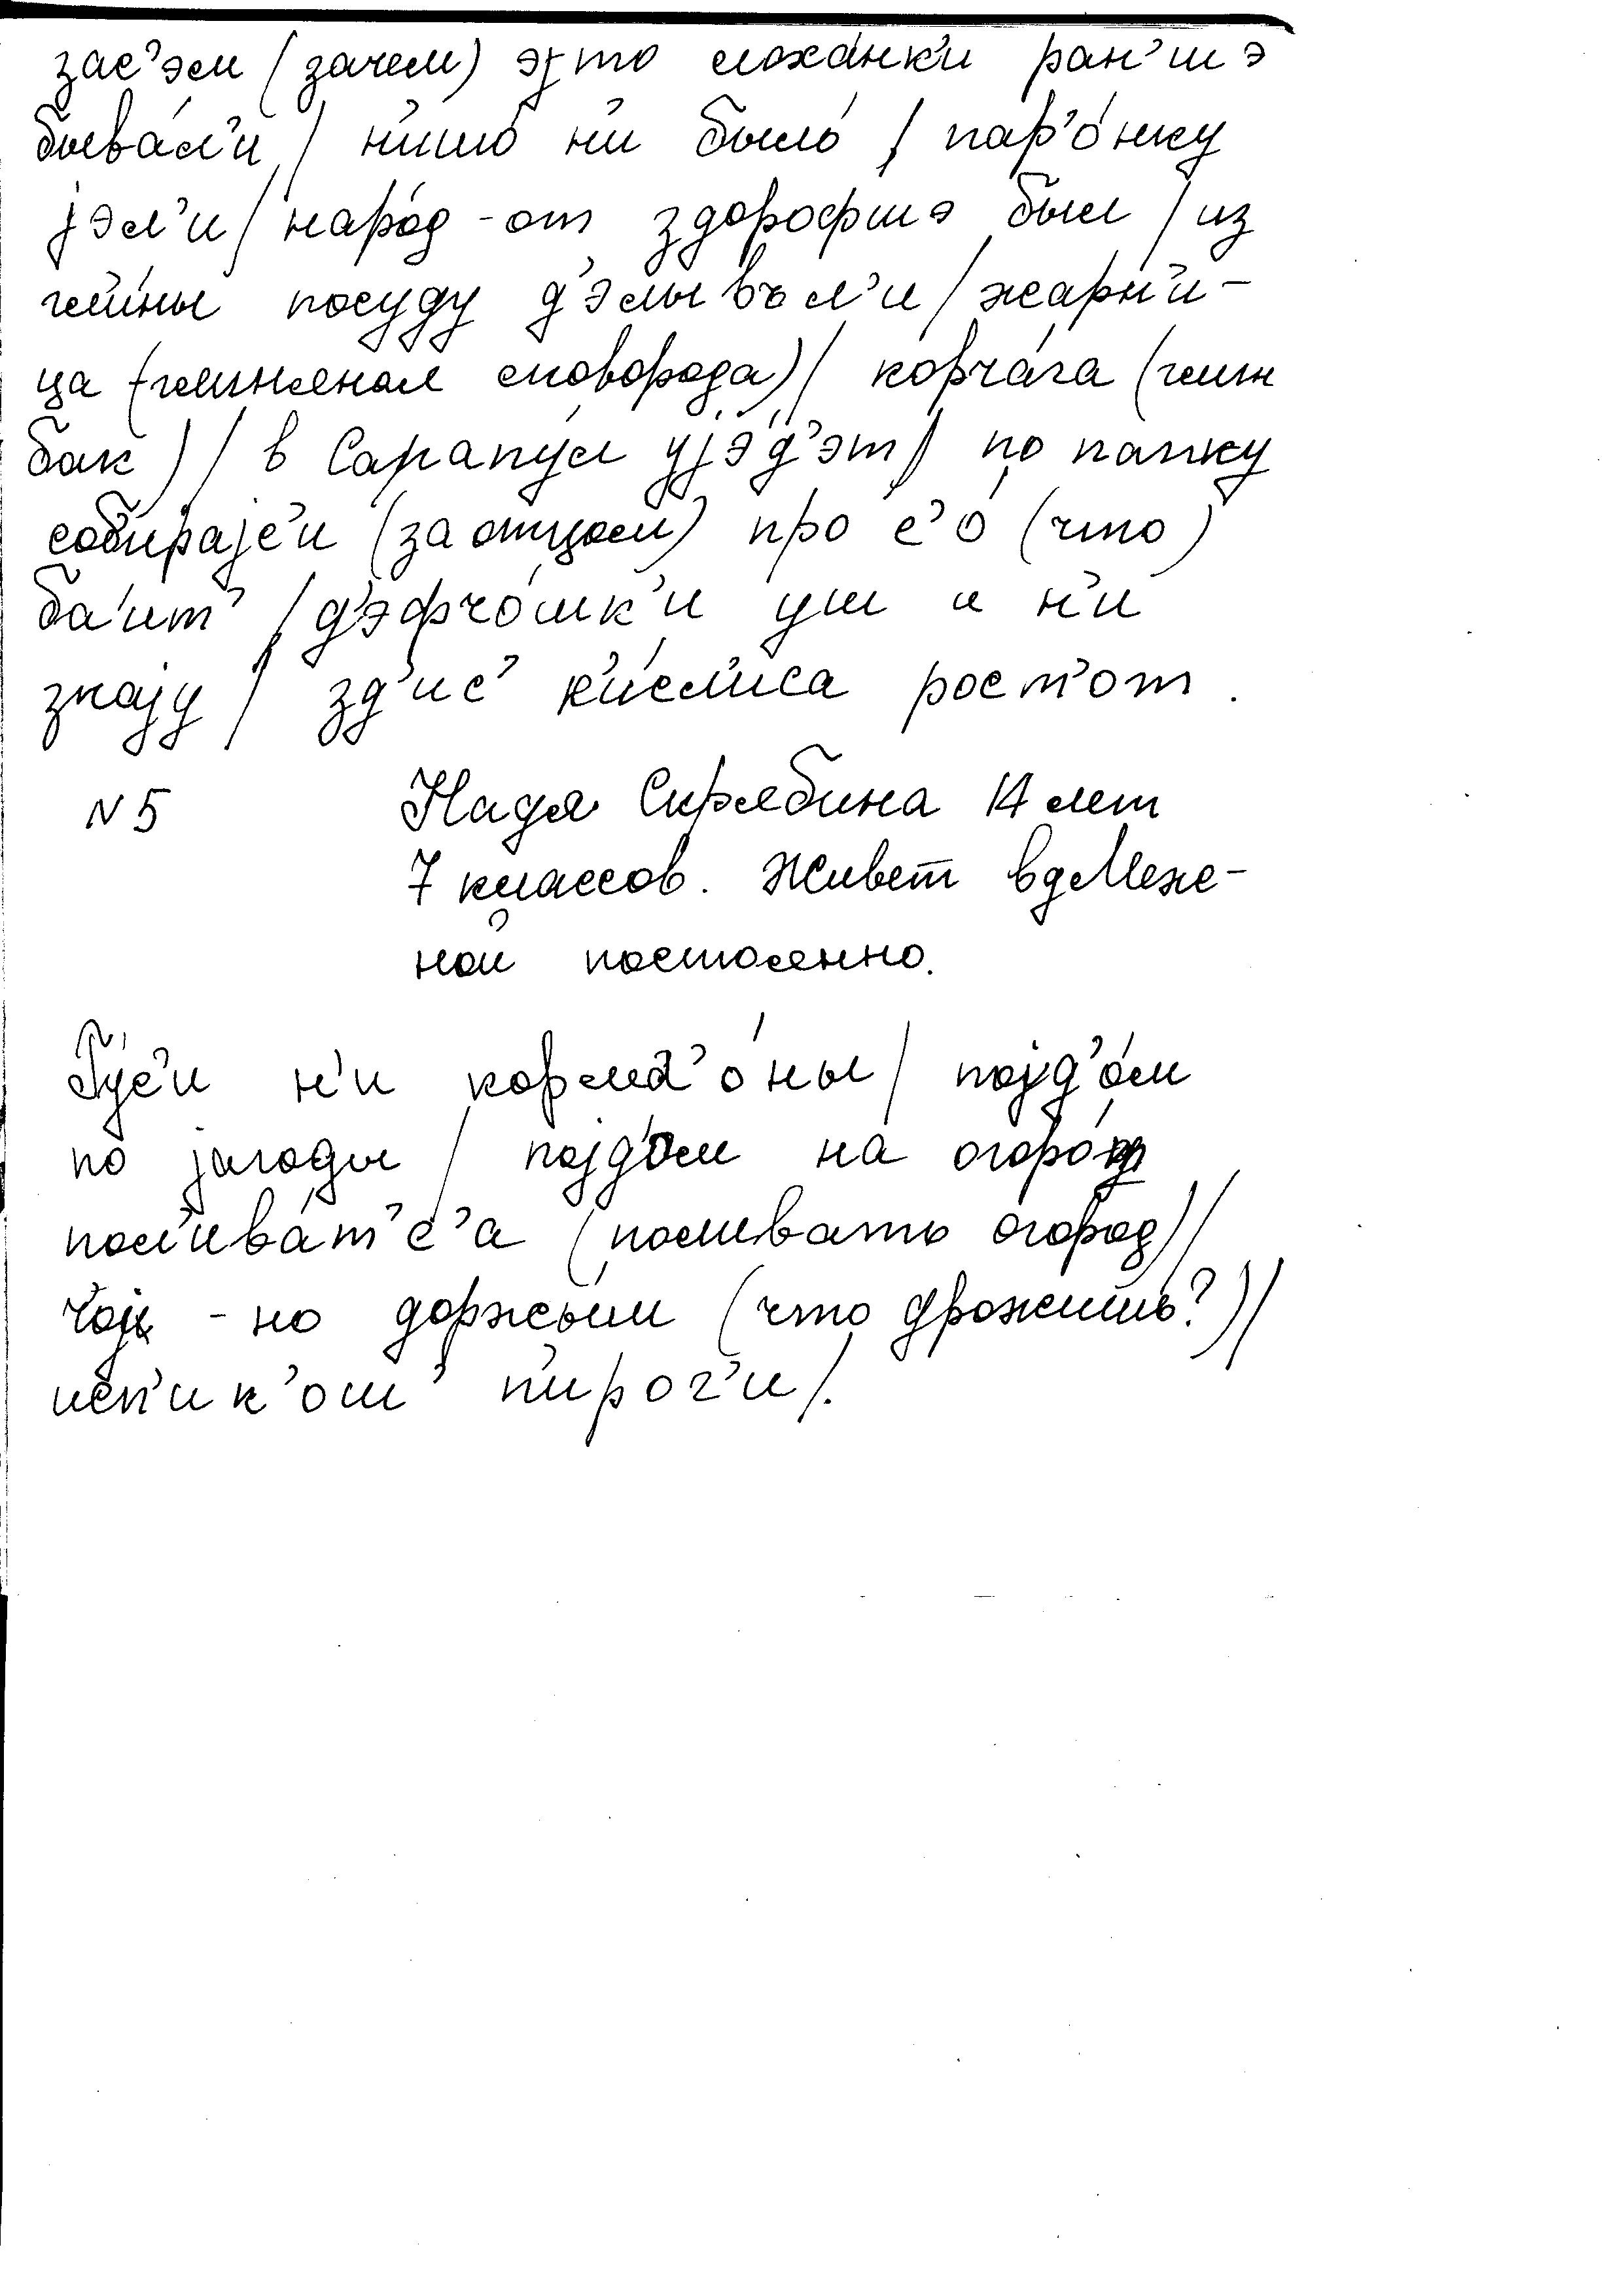 зас’эм (зачем) э́то лоха́нк’и ран’шэ
быва́л’и / н’ишо́ н’и было́ / пар’о́нку
jэл’и / наро́д-от здорофшэ был / из
гл’и́ны посуду д’э́лывъл’и / жарн’и-
ца (глиняная сковорода) / корча́га (глин
бак) // в Сарапу́л уjэ́д’эт / по папку
соб’ира́jс’и (за отцом) про с’о́ (что)
ба́ит’ / д’эфчо́шк’и уш и н’и
знаjу / зд’ис’ к’и́сл’иса рост’от.
N 5 Надя Скрябина 14 лет
7 классов. Живет в д Меже-
ной постоянно.
Гу́с’и н’и кормл’о́ны / поjд’о́м
по jагоды / поjд’о́м на огоро́д
пол’ива́т’с’а (поливать огород) //
Чоj-но доржы́ш (что дрожишь?) //
исп’ик’ош’ п’ирог’и /.